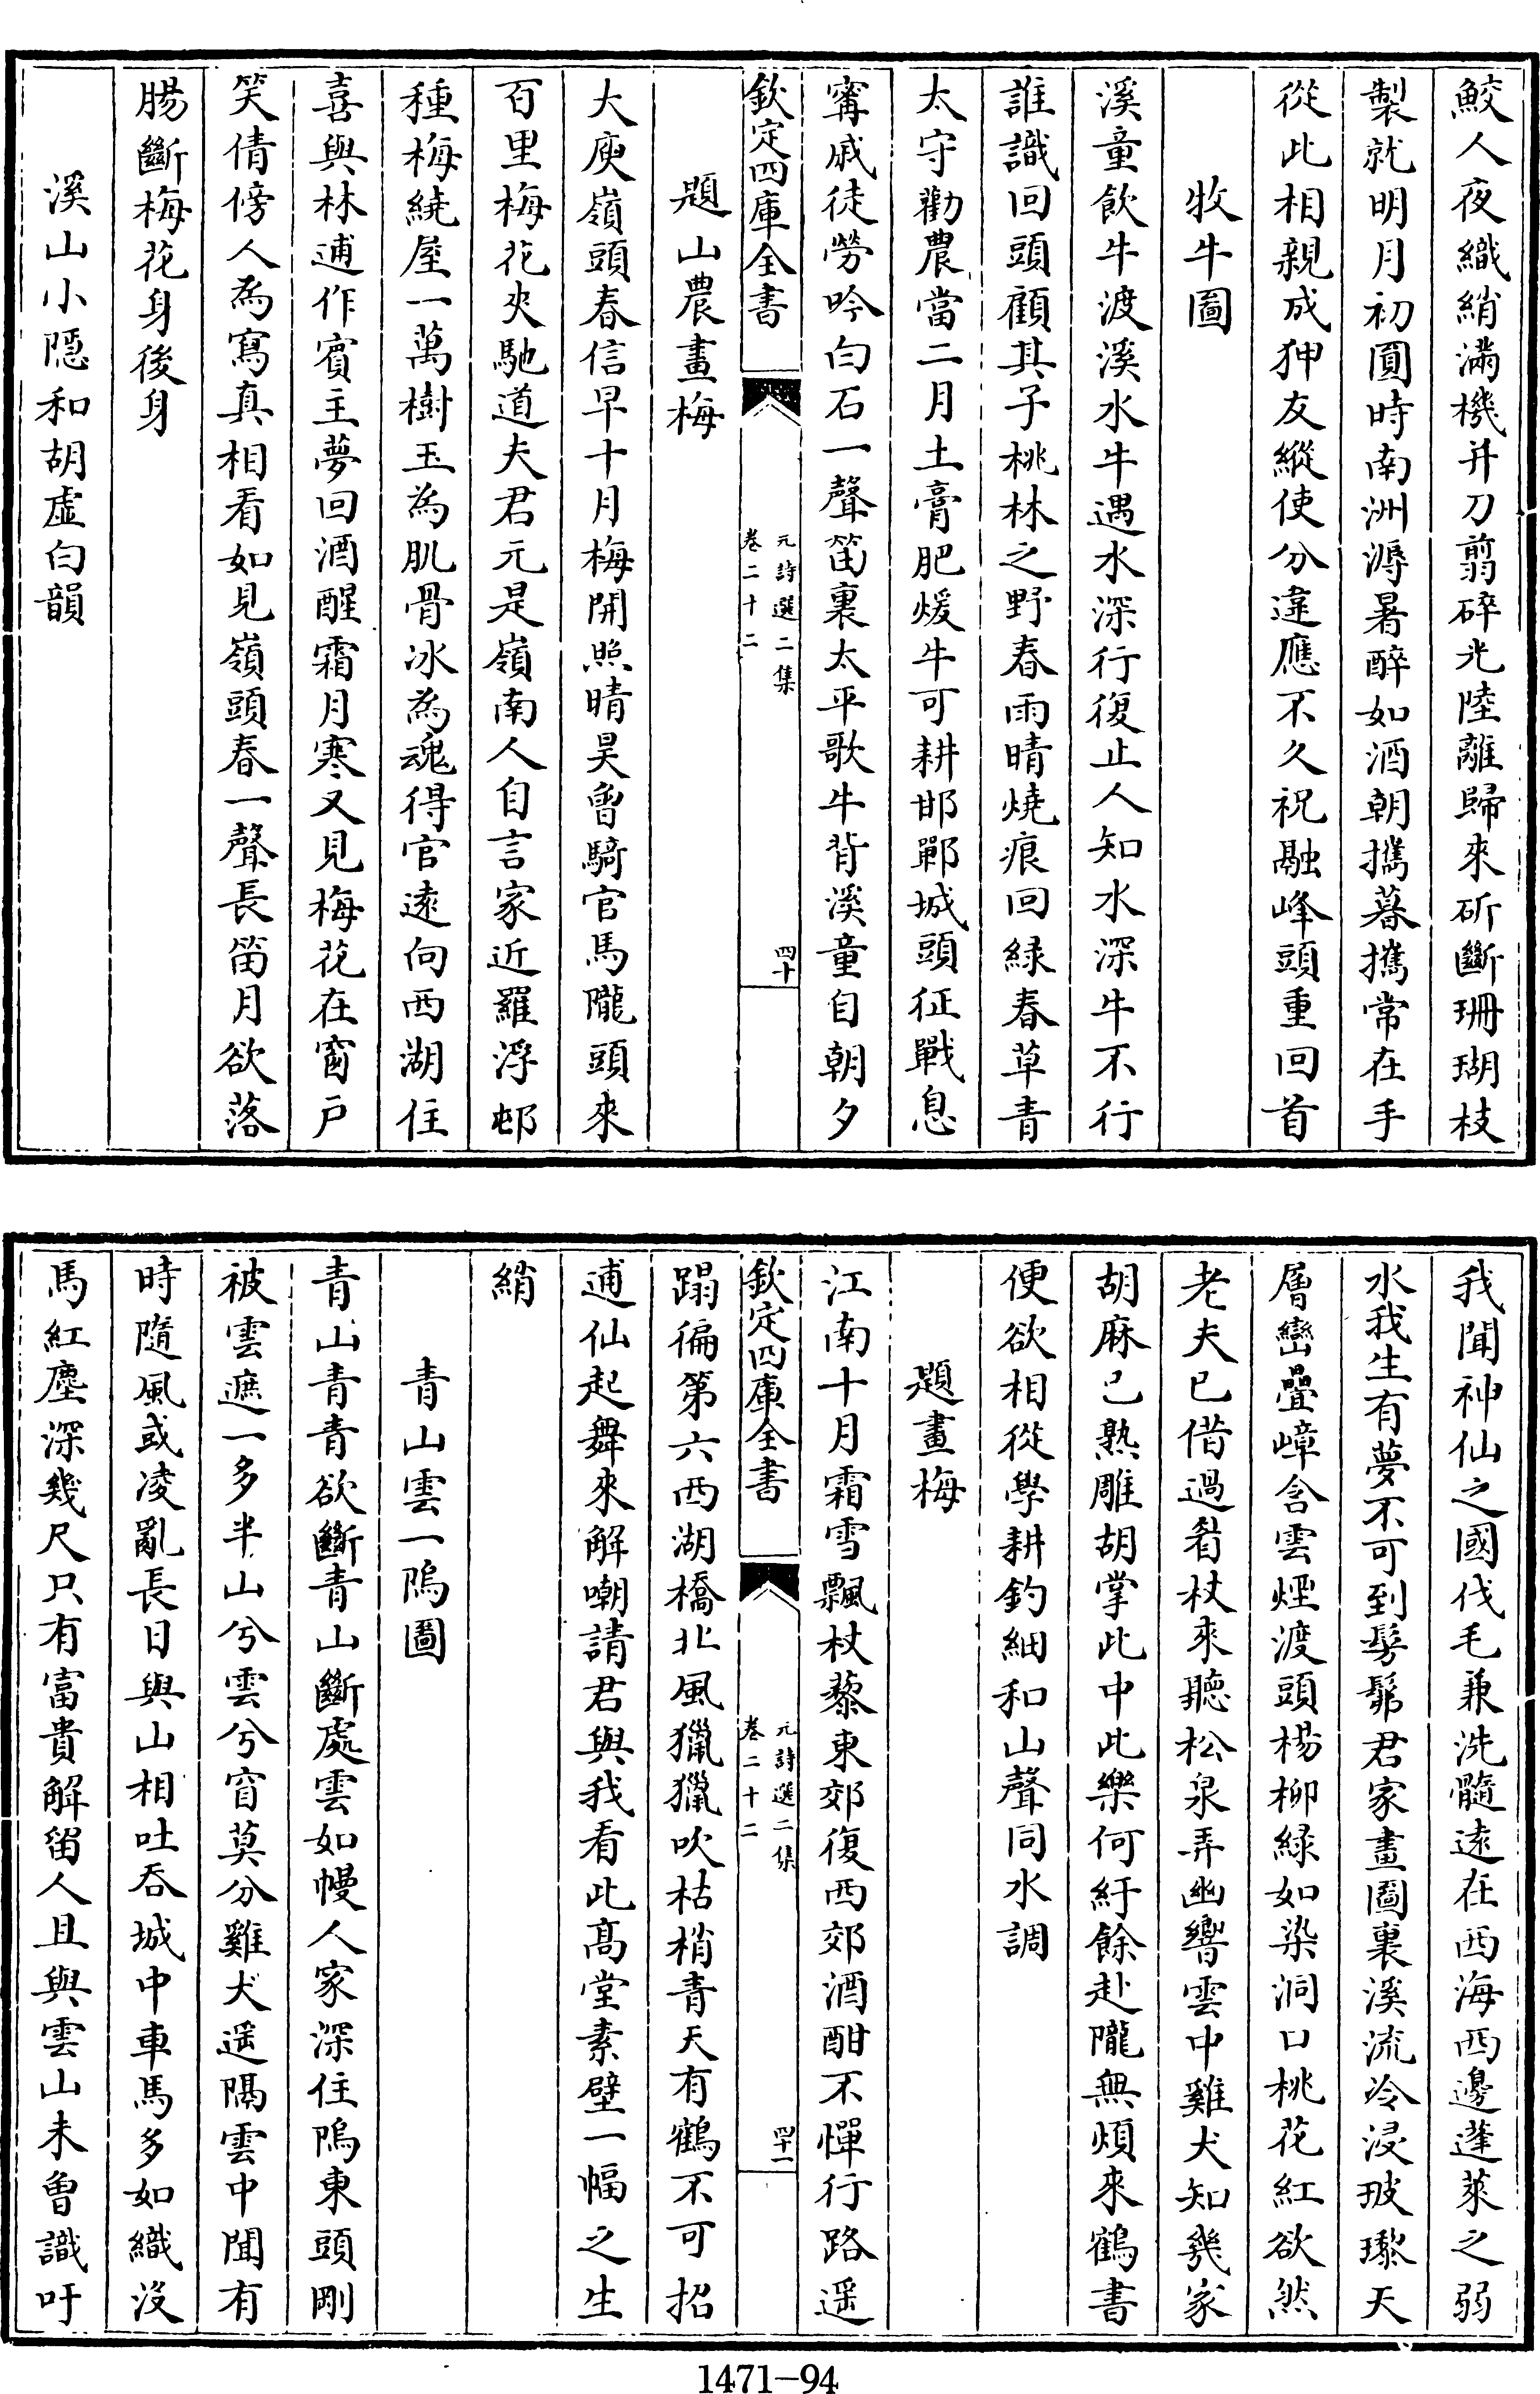 鮫人夜織綃滿機并刀翦碎光陸離歸來斫斷珊瑚枝
製就明月初圓時南洲溽暑醉如酒朝攜暮攜常在手
從此相親成狎友縱使分違應不久祝融峰頭重回首
牧牛圖
溪童飲牛渡溪水牛遇水深行復止人知水深牛不行
誰識回頭顧其子桃林之野春雨晴燒痕回緑春草青
太守勸農當二月土膏肥煖牛可耕邯鄲城頭征戰息
甯戚徒勞吟白石一聲笛裏太平歌牛背溪童自朝夕
欽定四庫全書
元詩選二集
卷二十二
四十
題山農畫梅
大庾嶺頭春信早十月梅開照晴昊曾騎官馬隴頭來
百里梅花夾馳道夫君元是嶺南人自言家近羅浮邨
種梅繞屋一萬樹玉為肌骨冰為魂得官遠向西湖住
喜與林逋作賓主夢回酒醒霜月寒又見梅花在窗户
笑倩傍人為寫真相看如見嶺頭春一聲長笛月欲落
腸斷梅花身後身
溪山小隱和胡虛白韻
我聞神仙之國伐毛兼洗髓遠在西海西邊蓬萊之弱
水我生有夢不可到髣髴君家畫圖裏溪流冷浸玻瓈天
層巒疊嶂含雲煙渡頭楊柳緑如染洞口桃花紅欲然
老夫已借過眉杖來聽松泉弄幽響雲中雞犬知幾家
胡麻已熟雕胡掌此中此樂何紆餘赴隴無煩來鶴書
便欲相從學耕釣細和山聲同水調
題畫梅
江南十月霜雪飄杖藜東郊復西郊酒酣不憚行路遥
欽定四庫全書
元詩選二集
卷二十二
四十一
蹋徧第六西湖橋北風獵獵吹枯梢青天有鶴不可招
逋仙起舞來解嘲請君與我看此高堂素壁一幅之生
綃
青山雲一隖圖
青山青青欲斷青山斷處雲如幔人家深住隖東頭剛
被雲遮一多半山兮雲兮窅莫分雞犬遥隔雲中聞有
時隨風或凌亂長日與山相吐吞城中車馬多如織沒
馬紅塵深幾尺只有富貴解留人且與雲山未曾識吁
1471-94